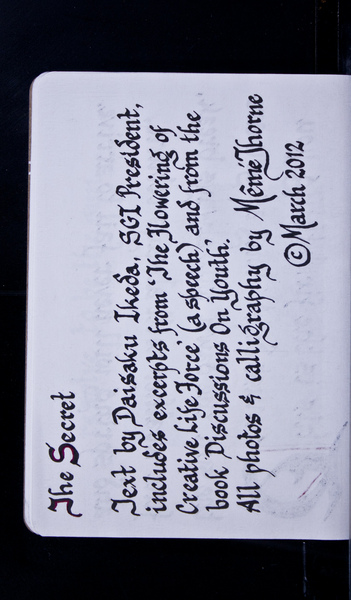 The Secret
Text by Daisaku Ikeda, SGI President,
includes excerpts from 'The Flowering of
Creative Life Force' (a speech) and from the
book Discussions On Youth'.
All photos & calligraphy by Mêmé Thorne
©March 2012